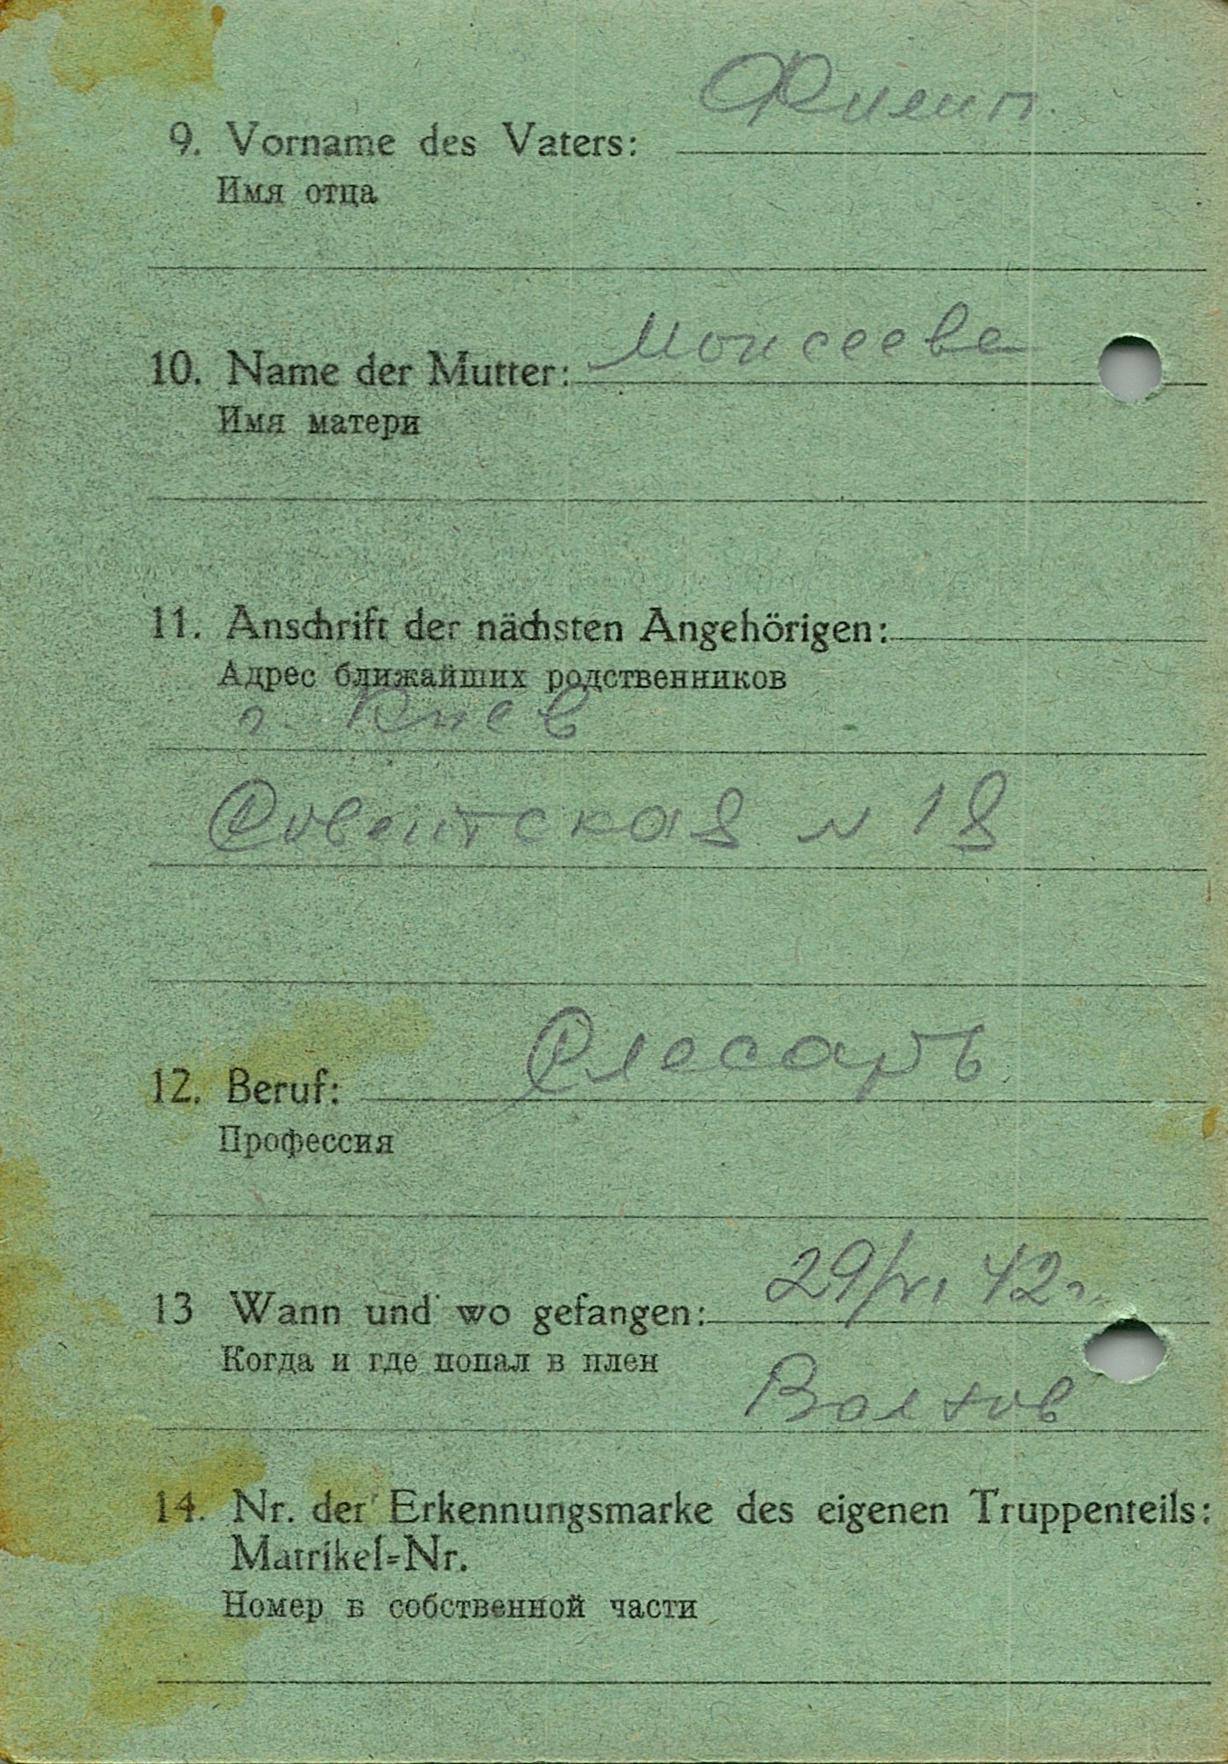 Филип
9. Vorname des Vaters:
Имя отца
Моисеева
10. Name der Mutter:
Имя матери
11. Anschrift der nächsten Angehörigen:
Адрес ближайших родственников
г. Киев
Советская N 18
Слесарь
12. Beruf:
Профессия
29/VI 42 г.
13 Wann und wo gefangen:
Когда и где попал в плен
Волхов
14. Nr. der Erkennungsmarke des eigenen Truppenteils:
Matrikel=Nr.
Номер в собственной части